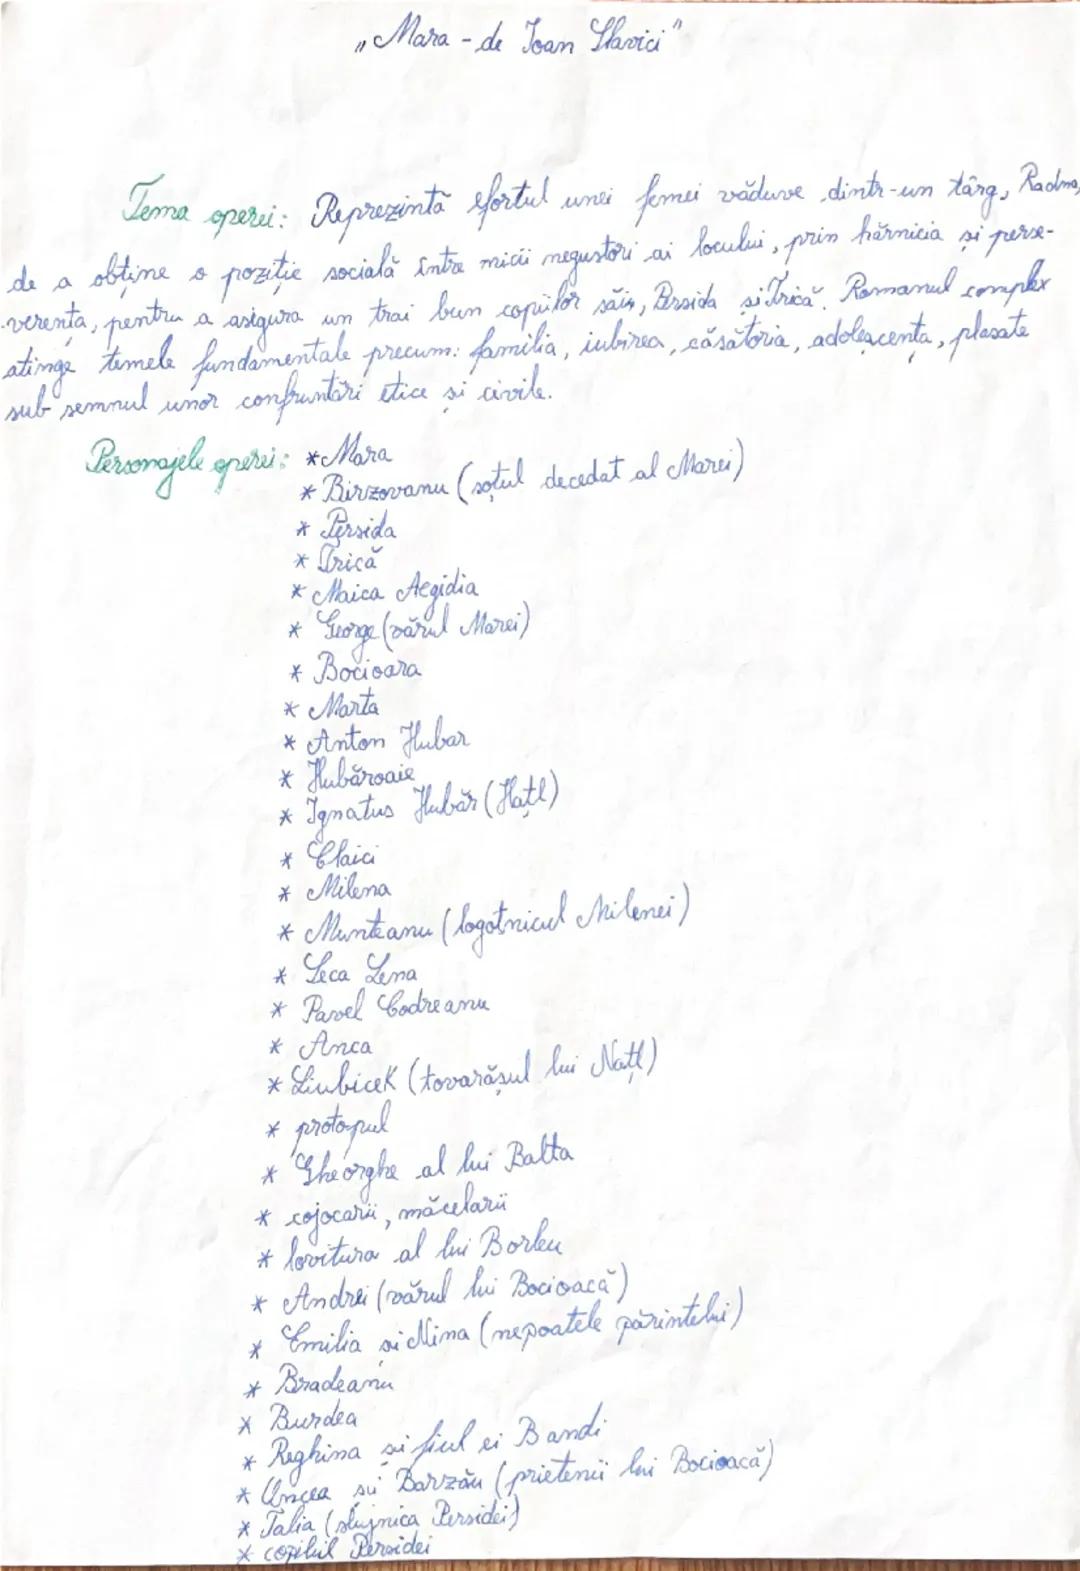 „Mara - de Ioan Slavici"
Tema operei: Reprezintă efortul unei femei văduve dintr-un târg, Radna,
de a obține o poziție socială între micii negustori ai locului, prin hărnicia și perse-
verența, pentru a asigura un trai bun copiilor săis, Persida și Trică. Romanul complex
atinge temele fundamentale precum: familia, iubirea, căsătoria, adolescența, plasate
sub semnul unor confruntări etice și civile.
Personajele operei: * Mara
* Bîrzovanu (soțul decedat al Marei)
* Persida
* Trică
* Maica Aegidia
* George (vărul Marei)
* Bocioara
* Marta
* Anton Hubar
* Hubăroaie
* Ignatus Hubăr (Hațl)
* Claici
* Milena
* Munteanu (logotnicul Milenei)
* Leca Lena
* Pavel Codreanu
* Anca
* Liubicek (tovarășul lui Națl)
* protopul
* Gheorghe al lui Balta
* cojocarii, măcelarii
* lovitura al lui Borleu
* Andrei (vărul lui Bocioacă)
* Emilia și Nina (nepoatele părintelui)
* Bradeanu
* Burdea
* Reghina și fiul ei Bandi
* Uncea și Barzău (prietenii lui Bocioacă)
* Talia (slujnica Persidei)
* copilul Persidei